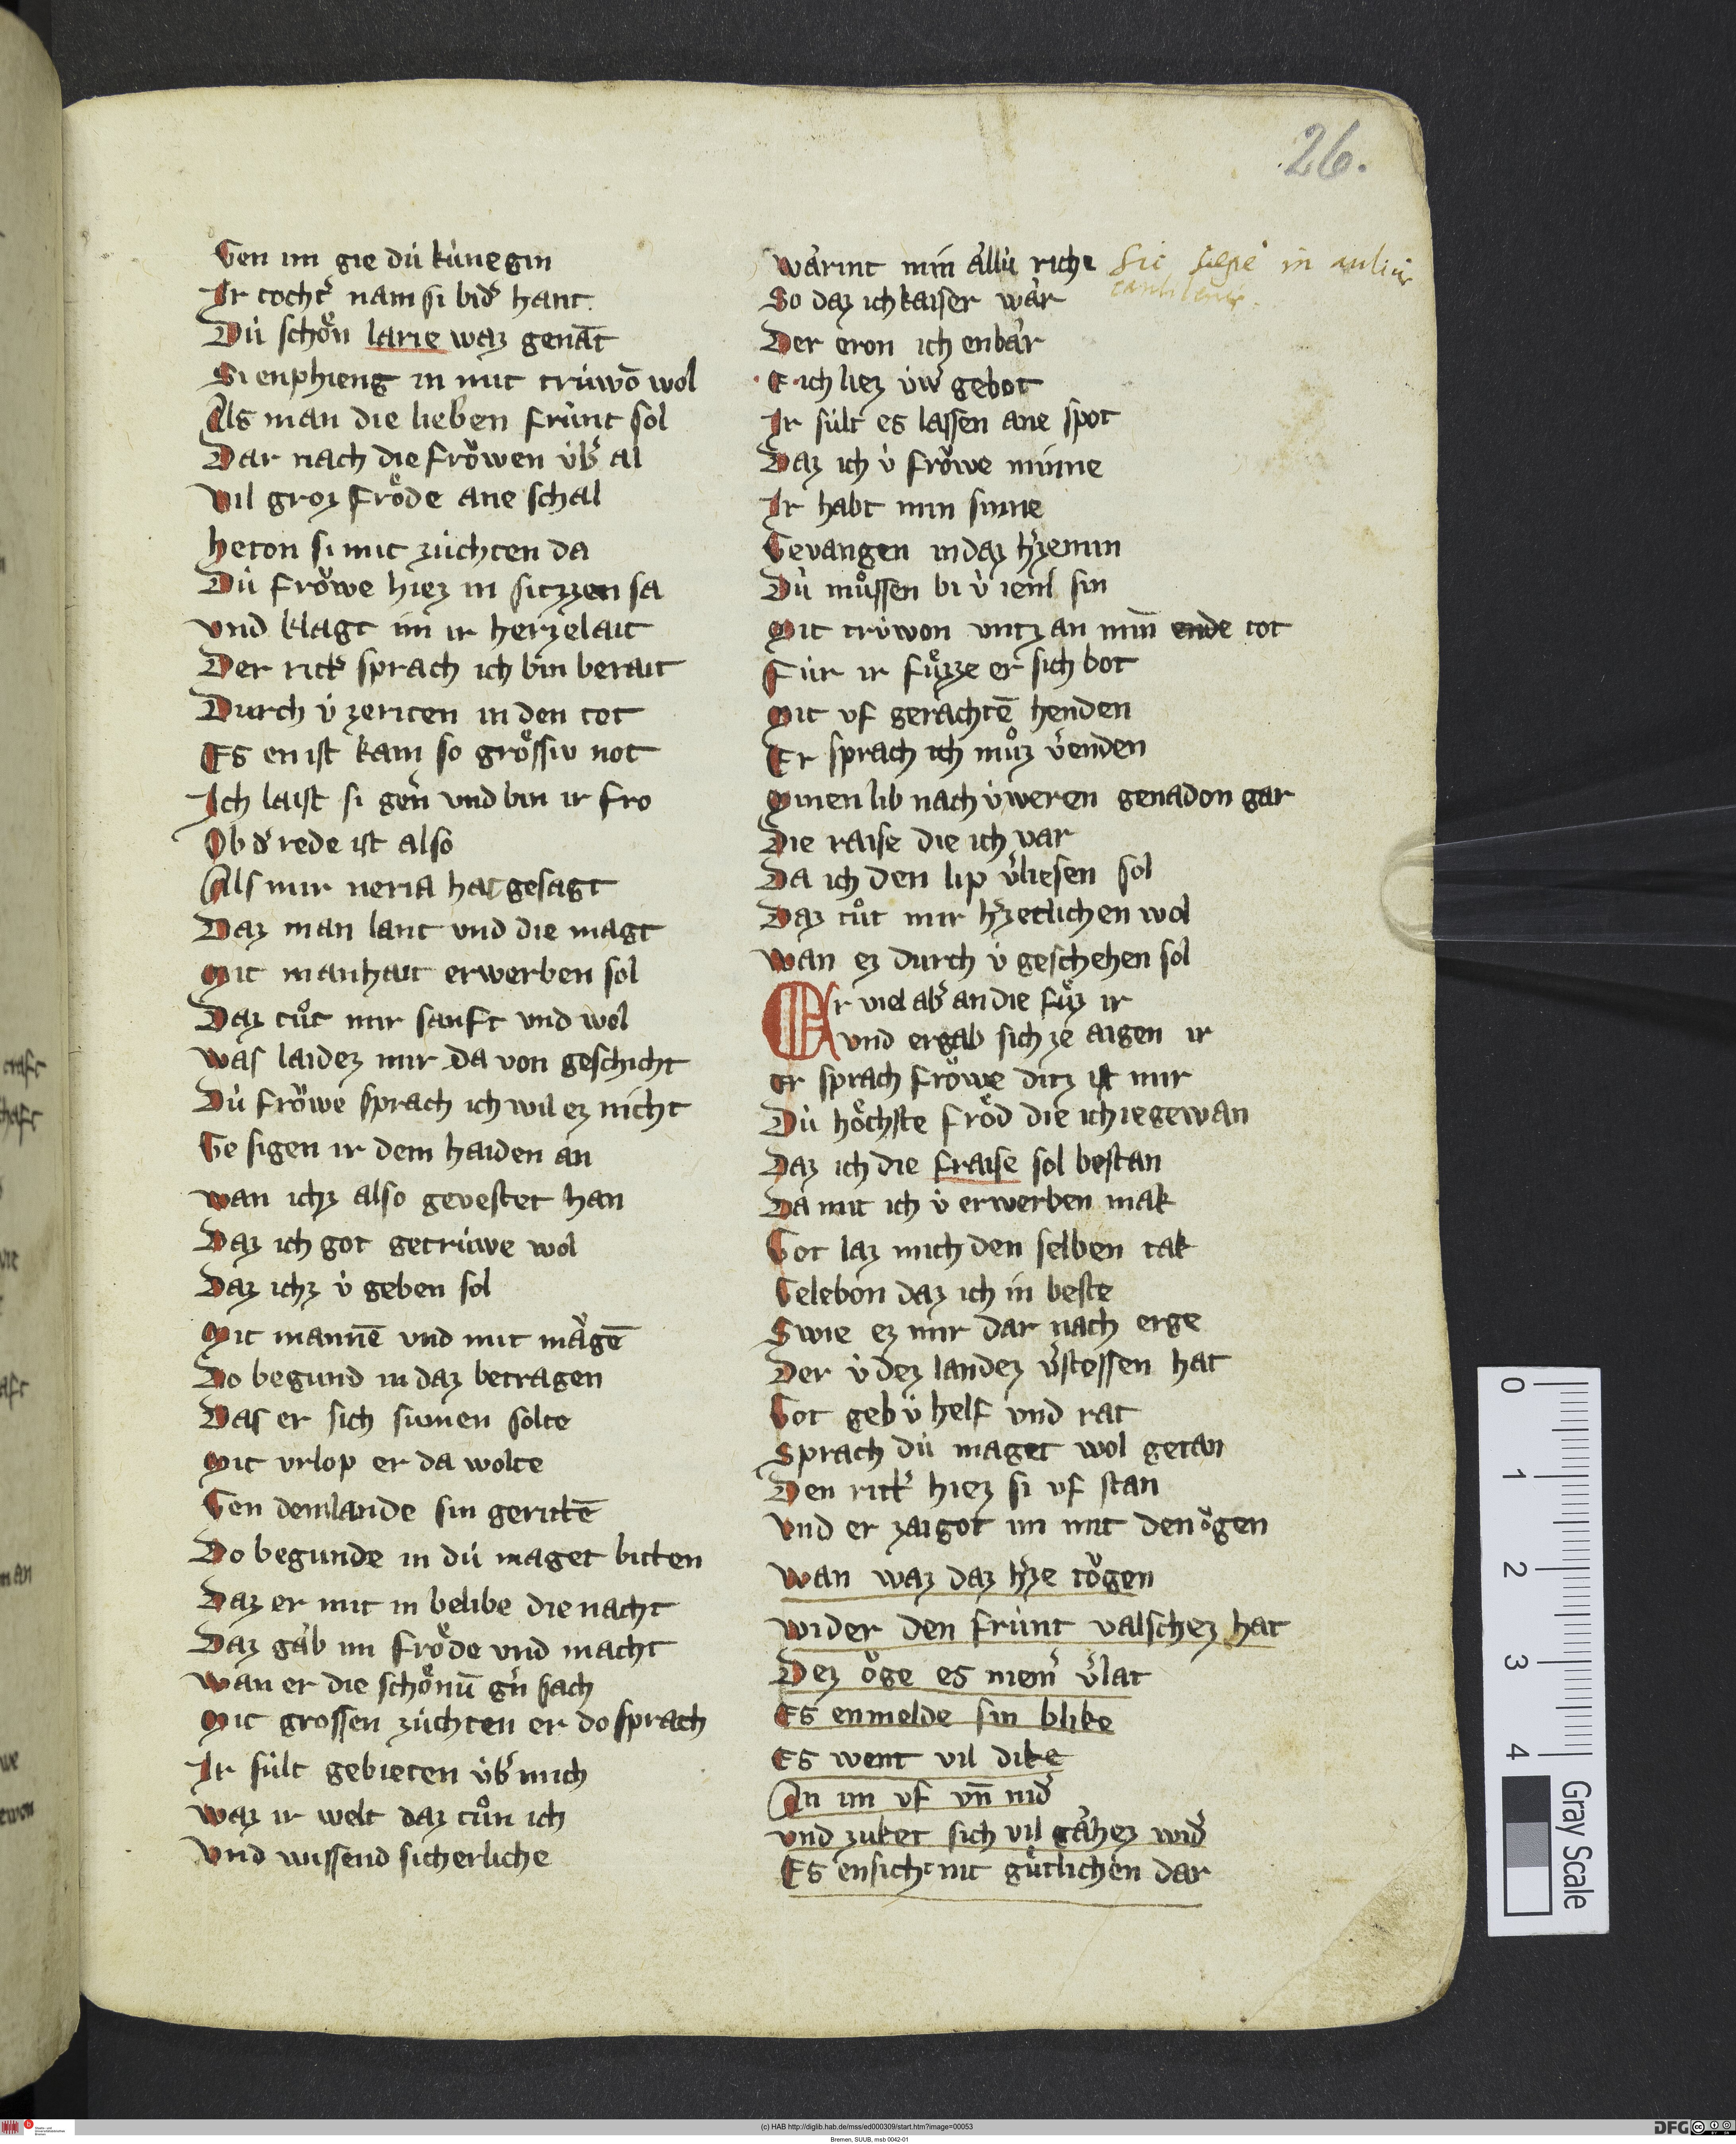 26.
Gen im gie dú kúnegin
Ir tochtˀ nam si bidˀ hant
Dú schoͤn larie waz genāt
Si enphieng in mit trúwō wol
Als man die lieben frúnt sol
Dar nach die froͮwen úbˀ al
Vil groz froͤde ane schal
heton si mit zúchten da
Dú froͮwe hiez in sitzzen sa
vnd klagt im ir herzelait
Der rittˀ sprach ich bin berait
Durch ú zeriten in den tot
Es en ist kain so groͤssiv not
Ich laist si gern̄ vnd bin ir fro
Ob dˀ rede ist also
Als mir neria hat gesagt
Daz man lant vnd die magt
Mit manhait erwerben sol
Daz tuͦt mir sanft vnd wol
Was laidez mir da von geschicht
Dú froͮwe sprach ich wil ez nicht
Ge sigen ir dem haiden an
wan ichz also gevestet han
Daz ich got getrúwe wol
Daz ichz ú geben sol
Mit mannē vnd mit maͤgē
Do begund in daz betragen
Das er sich sumen solte
Mit vrlop er da wolte
Gen dem lande sin geritē
Do begunde in dú maget bitten
Daz er mit in belibe die nacht
Daz gaͤb im froͤde vnd macht
Wan er die schoͤnū gˀn sach
Mit grossen zúchten er do sprach
Ir súlt gebieten úbˀ mich
Waz ir welt daz tuͦn ich
Vnd wissend sicherliche
waͤrint min aͤllú riche
So daz ich kaiser waͤr
Der eron ich enbaͤr
E ich liez úwˀ gebot
Ir súlt es lassen ane spot
Daz ich ú froͮwe minne
Ir habt min sinne
Gevangen in daz hˀze min
Dú muͦssen bi ú iemˀ sin
Mit trúwon vntz an min̄ ende tot
Fúr ir fuͤzze er sich bot
Mit vf geraͤchtē henden
Er sprach ich muͦz vˀenden
Minen lib nach úweren genadon gar
Die raise die ich var
Da ich den lip vˀliesen sol
Daz tuͦt mir hˀzetlichen wol
Wan ez durch ú geschehen sol
Er viel abˀ an die fuͤz ir
vnd ergab sich ze aigen ir
er sprach froͮwe ditz ist mir
Dú hoͤchste froͤd die ich ie gewan
Daz ich die fraise sol bestan
Da mit ich ú erwerben mak
Got laz mich den selben tak
Gelebon daz ich in beste
Swie ez mir dar nach erge
Der ú dez landez vˀstossen hat
Got geb ú helf vnd rat
Sprach dú maget wol getan
Den rittˀ hiez si vf stan
Vnd er zaigot im mit den oͮgen
Wan waz daz hˀze toͮgen
wider den frúnt valschez hat
Dez oͮge es niemˀ vˀlat
Es enmelde sin blike
Es went vil dike
An im vf vn̄ nidˀ
vnd zuket sich vil gaͤhez widˀ
Es ensicht nit guͤtlichen dar
0 1 2 3 4
Gray Scale
(c) HAB http://diglib.hab.de/mss/ed000309/start.htm?image=00053
Bremen, SUUB, msb 0042-01
DFG